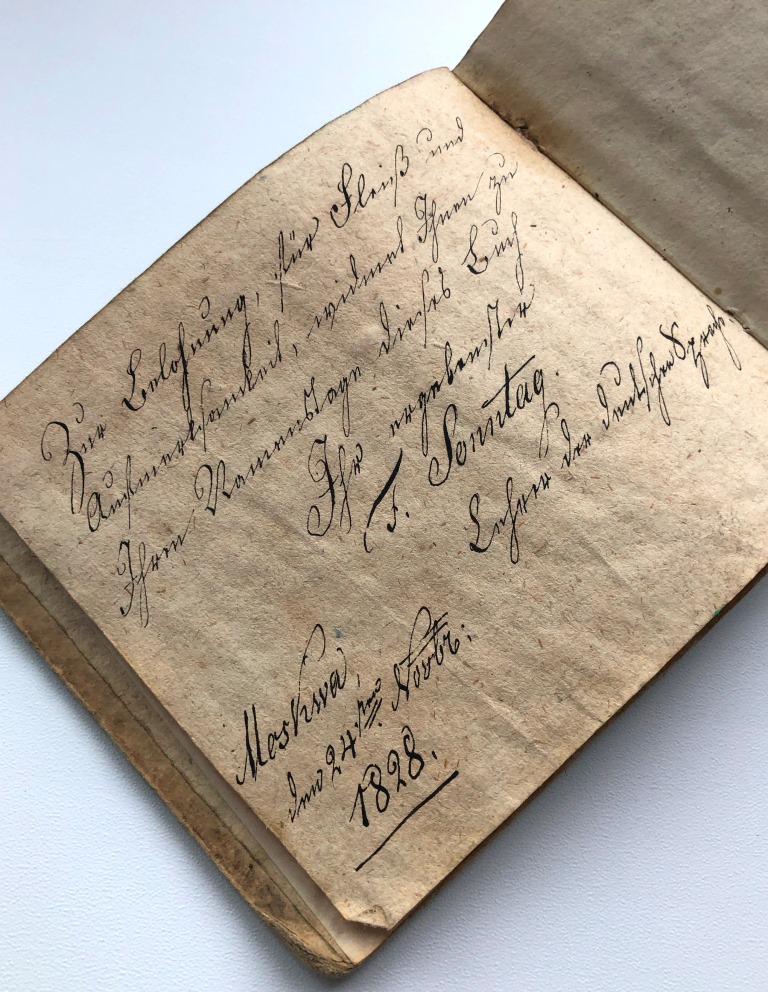 Zur Belohnung, für Fleiß und
Aufmerksamkeit, widmet Ihnen zu
Ihrem Namenstage dieses Buch
Ihr ergebenster
F. Sonntag.
Lehrer der deutschen Sprache.
Moskwa,
den 24ten Novbr:
1828.